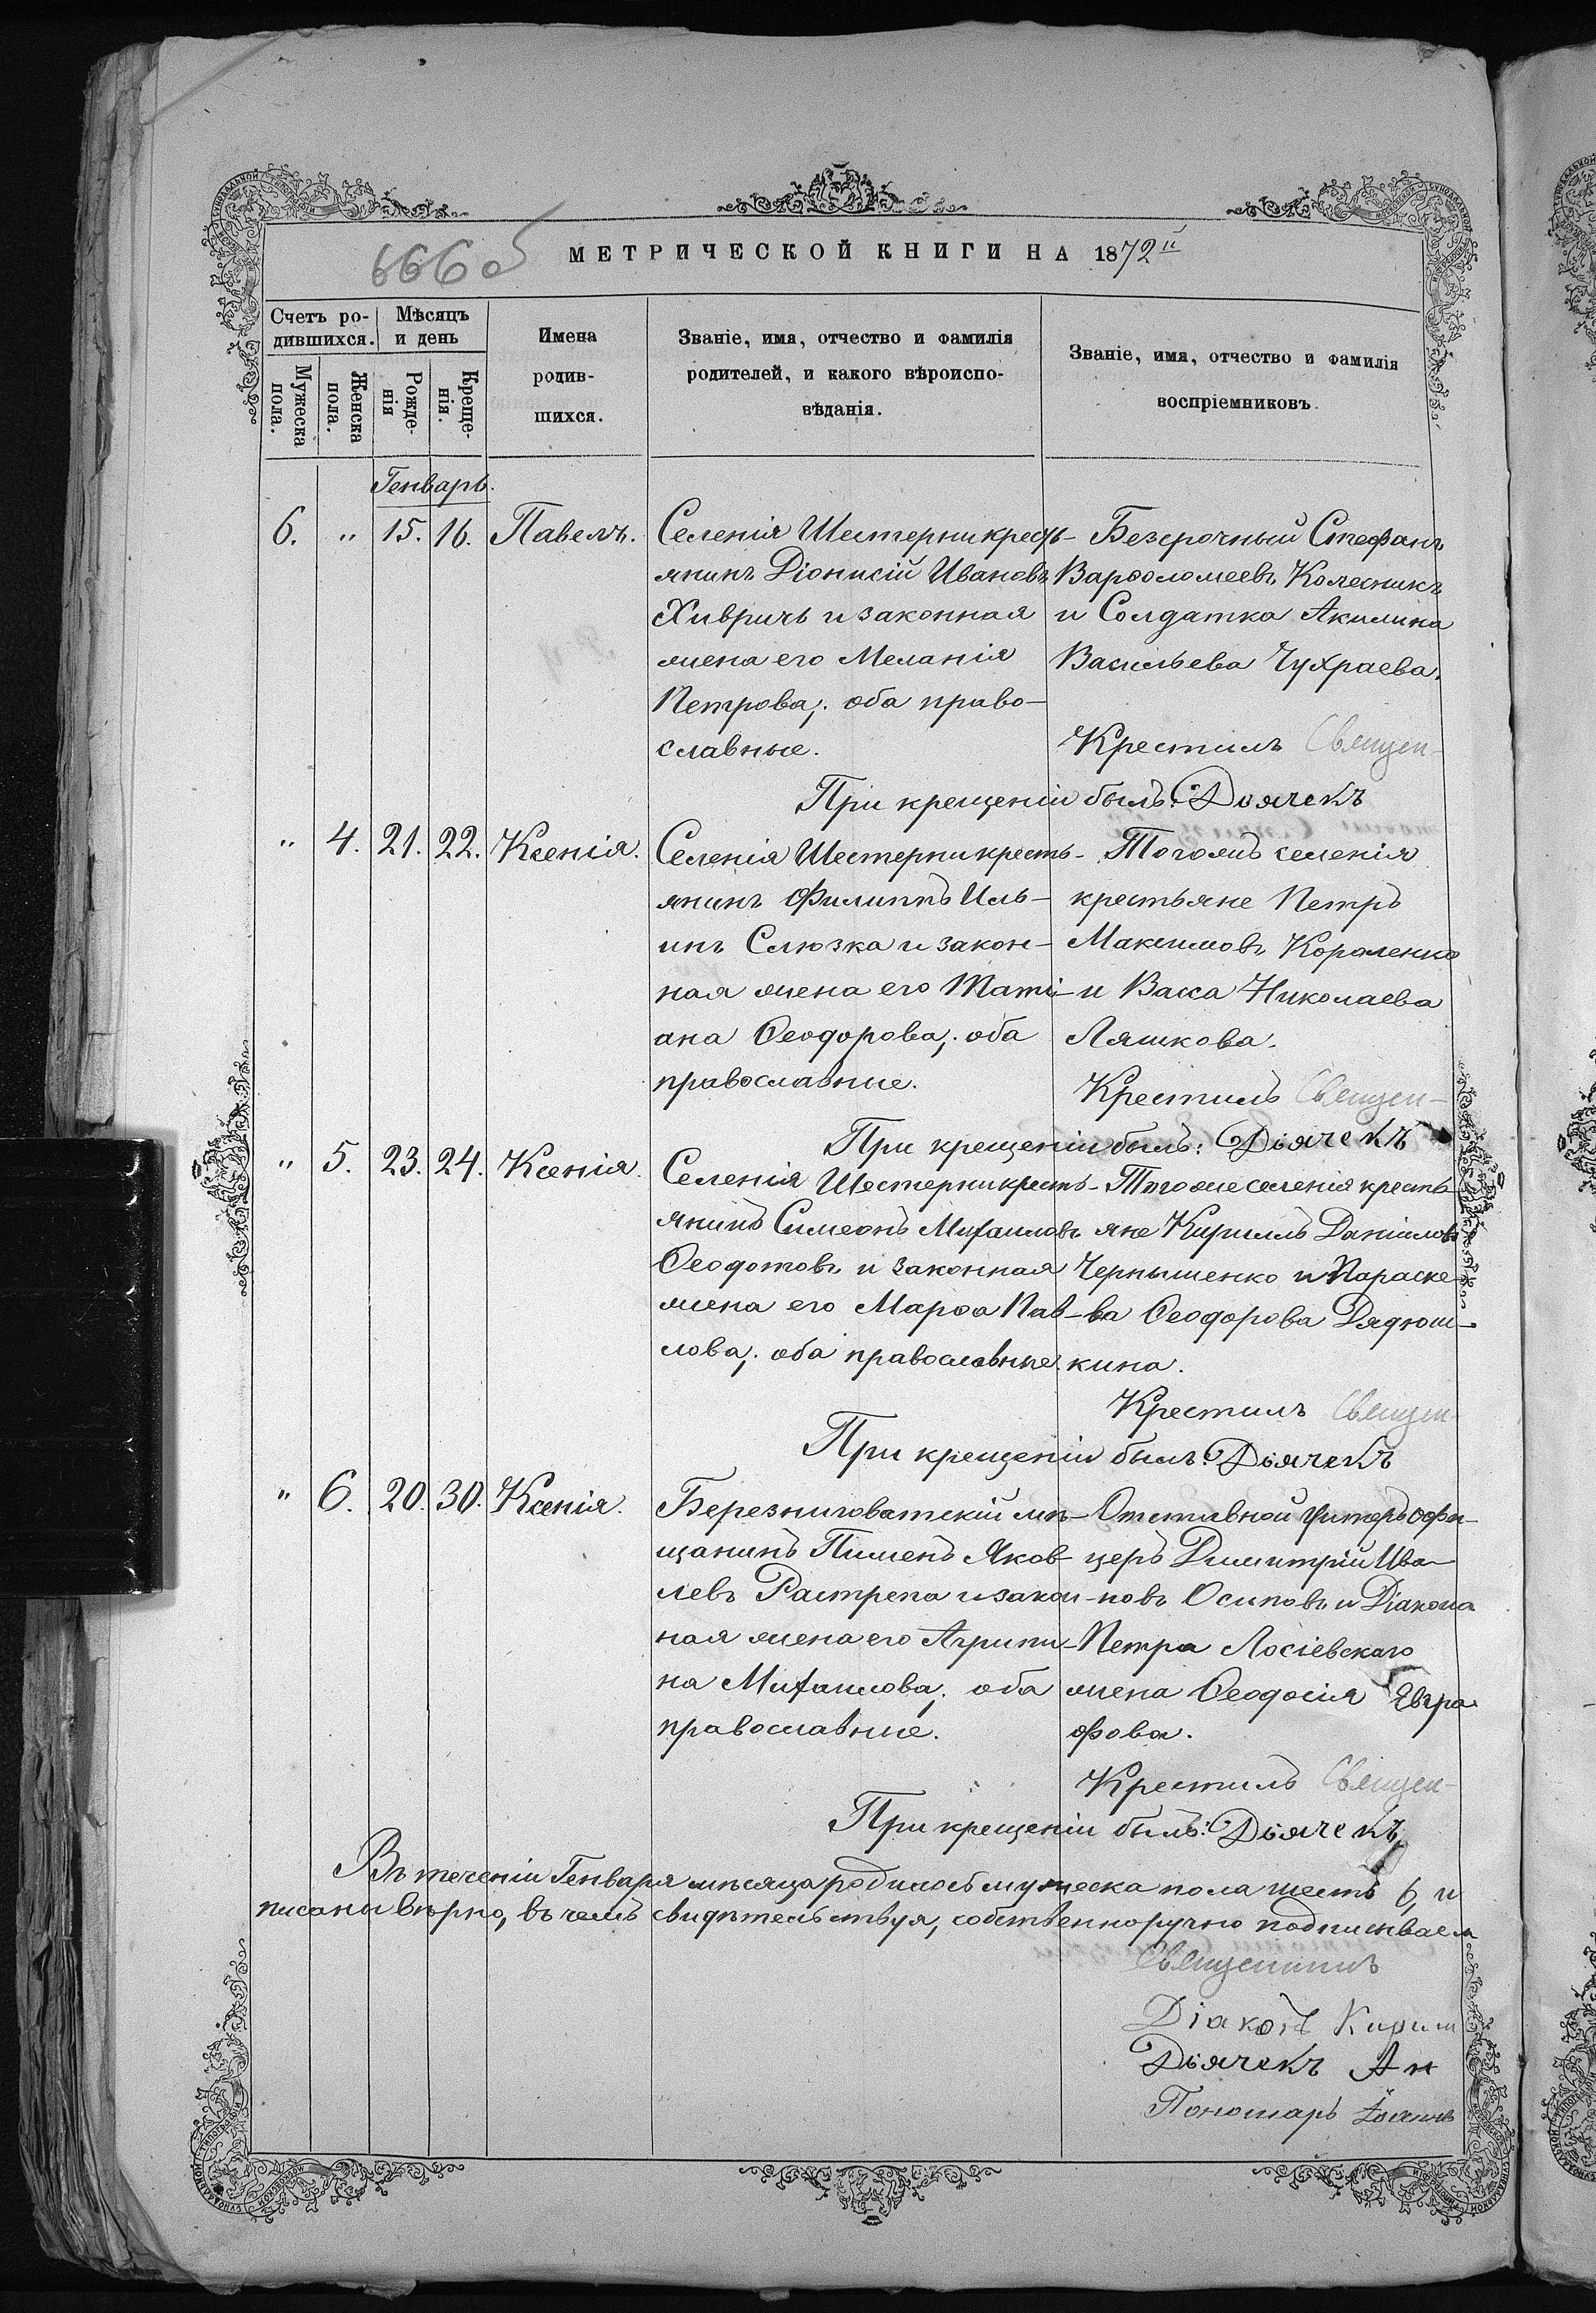 666об
МЕТРИЧЕСКОЙ КНИГИ НА 1872й
Счетъ ро-
дившихся.
Мужеска пола.
Женска пола.
Мѣсяцъ
и день
Рожде-
нія
Креще-
нія.
Имена
родив-
шихся.
Званіе, имя, отчество и фамилія
родителей, и какого вѣроиспо-
вѣданія.
Званіе, имя, отчество и фамилія
воспріемниковъ.
Генварь.
6. " 15. 16. Павелъ.
Селенія Шестерни кресть-
янинъ Діонисій Ивановъ
Хивричъ и законная
жена его Меланія
Петрова; оба право-
славные.
Безсрочный Стефанъ
Варѳоломеевъ Колесникъ
и Солдатка Акилина
Васильева Чухраева.
Крестилъ Священ-
При крещеніи былъ: Дьячекъ
" 4. 21. 22. Ксенія.
Селенія Шестерни кресть-
янинъ Филиппъ Иль-
инъ Слюзка и закон-
ная жена его Тати-
ана Ѳеодорова; оба
православные.
Тогожъ селенія
крестьяне Петръ
Максимовъ Короленко
и Васса Николаева
Ляшкова.
Крестилъ Священ-
При крещеніи былъ: Дьячекъ
" 5. 23. 24. Ксенія.
Селенія Шестерни кресть-
янинъ Симеонъ Михаиловъ
Ѳеодотовъ и законная
жена его Марѳа Пав-
лова; оба православные.
Тогоже селенія кресть-
яне Кириллъ Даніиловъ
Чернышенко и Параске-
ва Ѳеодорова Дядюш-
кина.
Крестилъ Священ-
При крещеніи былъ: Дьячекъ
" 6. 20. 30. Ксенія.
Березниговатскій мѣ-
щанинъ Пименъ Яков-
левъ Растрепа и закон-
ная жена его Агрипи-
на Михаилова; оба
православные.
Отставной Унтеръ офи-
церъ Димитрій Ива-
новъ Осиповъ и Діакона
Петра Лосіевскаго
жена Ѳеодосія Евгра-
фова.
Крестилъ Священ-
При крещеніи былъ: Дьячекъ
Въ теченіи Генваря мѣсяца родилось мужеска пола шесть 6, и
писаны вѣрно, въ чемъ свидѣтельствуя, собственноручно подписываем
Священникъ
Діаконъ Кирил
Дьячекъ Ан
Пономарь